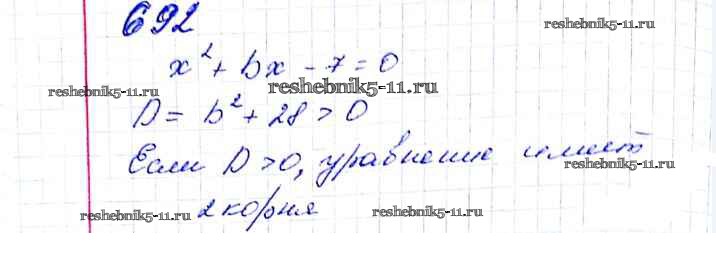 692
reshebnik5-11.ru
x² + bx - 7 = 0
reshebnik5-11.ru
reshebnik5-11.ru
D = b² + 28 > 0
Если D > 0, уравнение имеет
reshebnik5-11.ru
2 корня
reshebnik5-11.ru
reshebnik5-11.ru